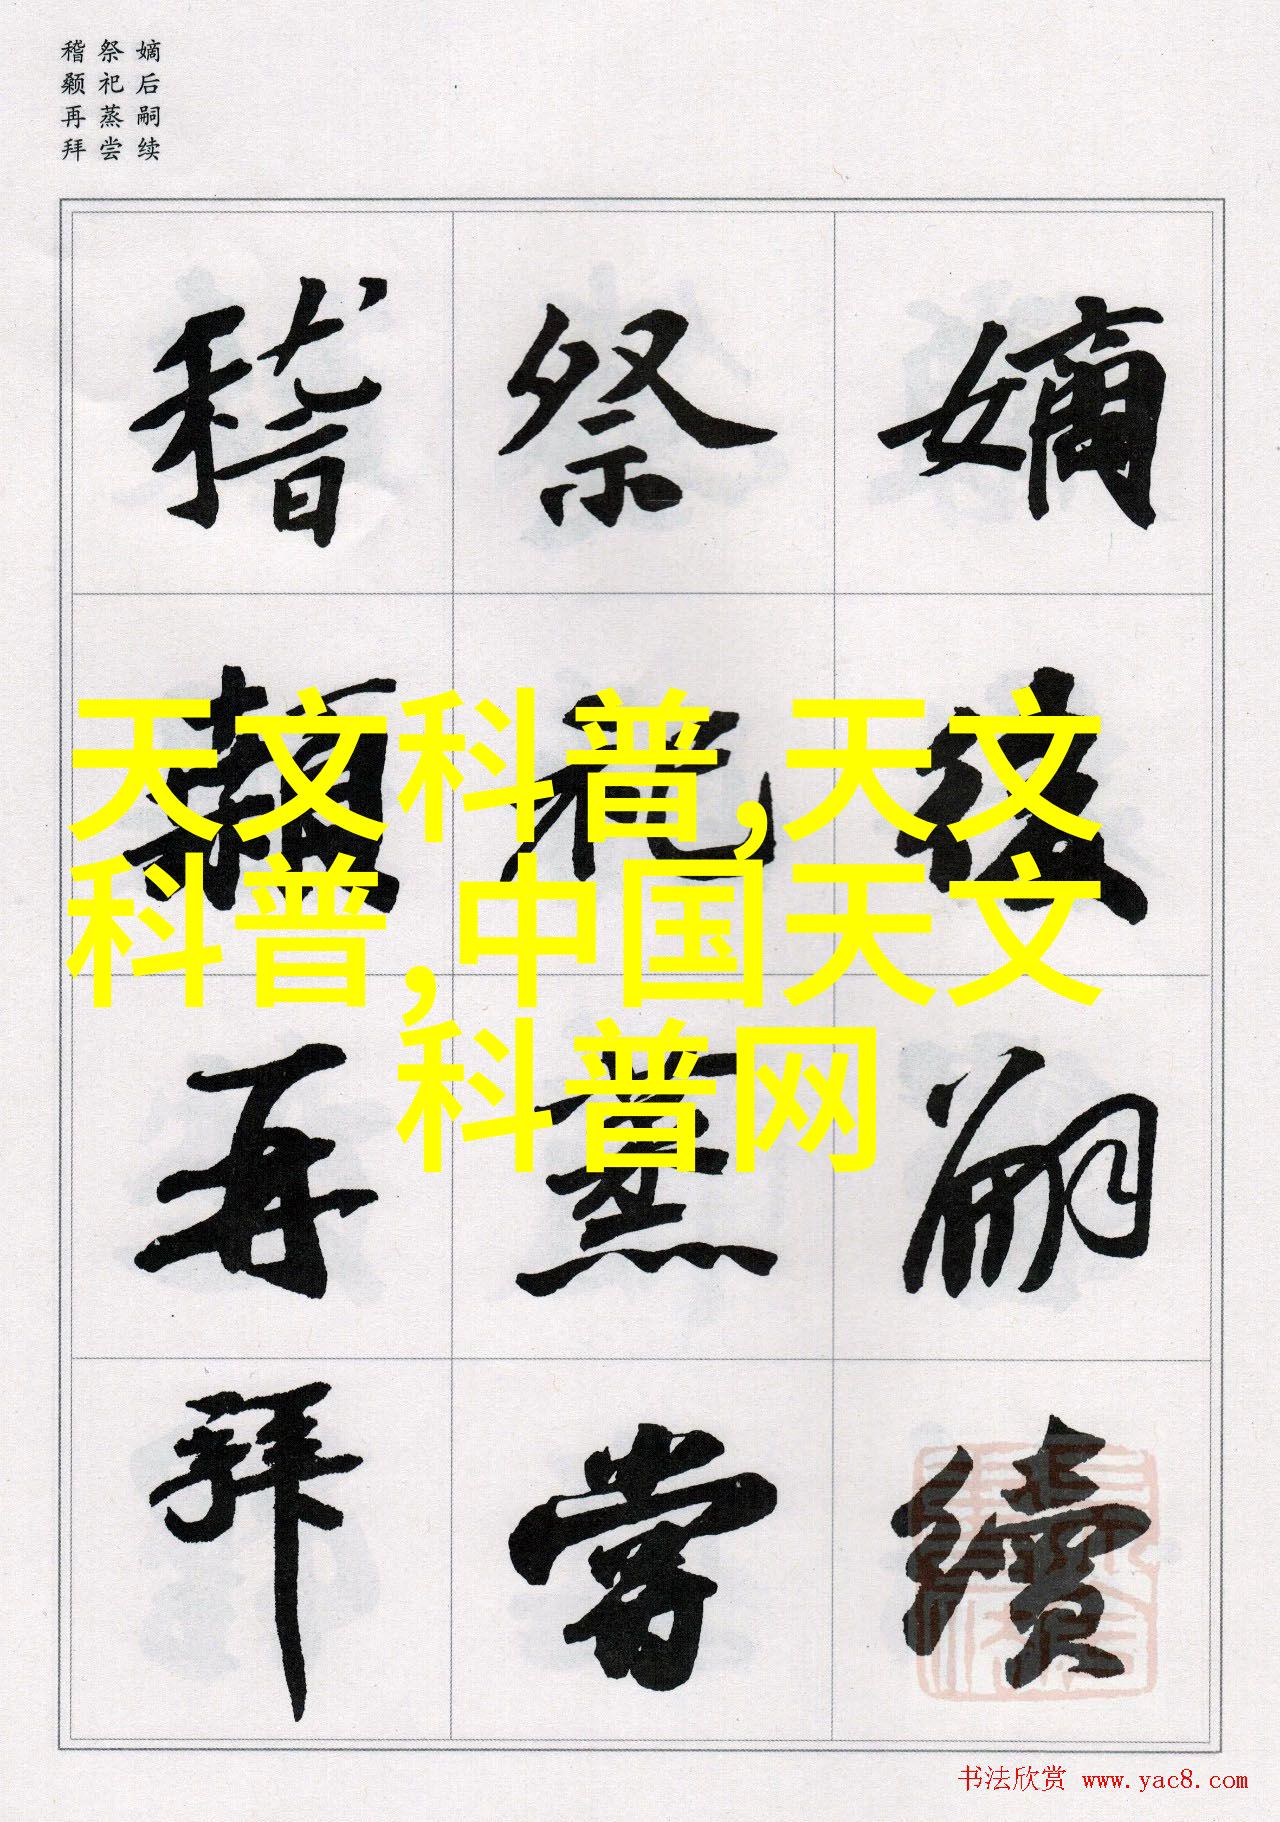 嫡后嗣续
祭祀蒸尝
稽颡再拜
嫡後嗣續
祭祀蒸嘗
稽顙再拜
天文科普,天文
科普,中国天文
科普网
书法欣赏 www.yac8.com